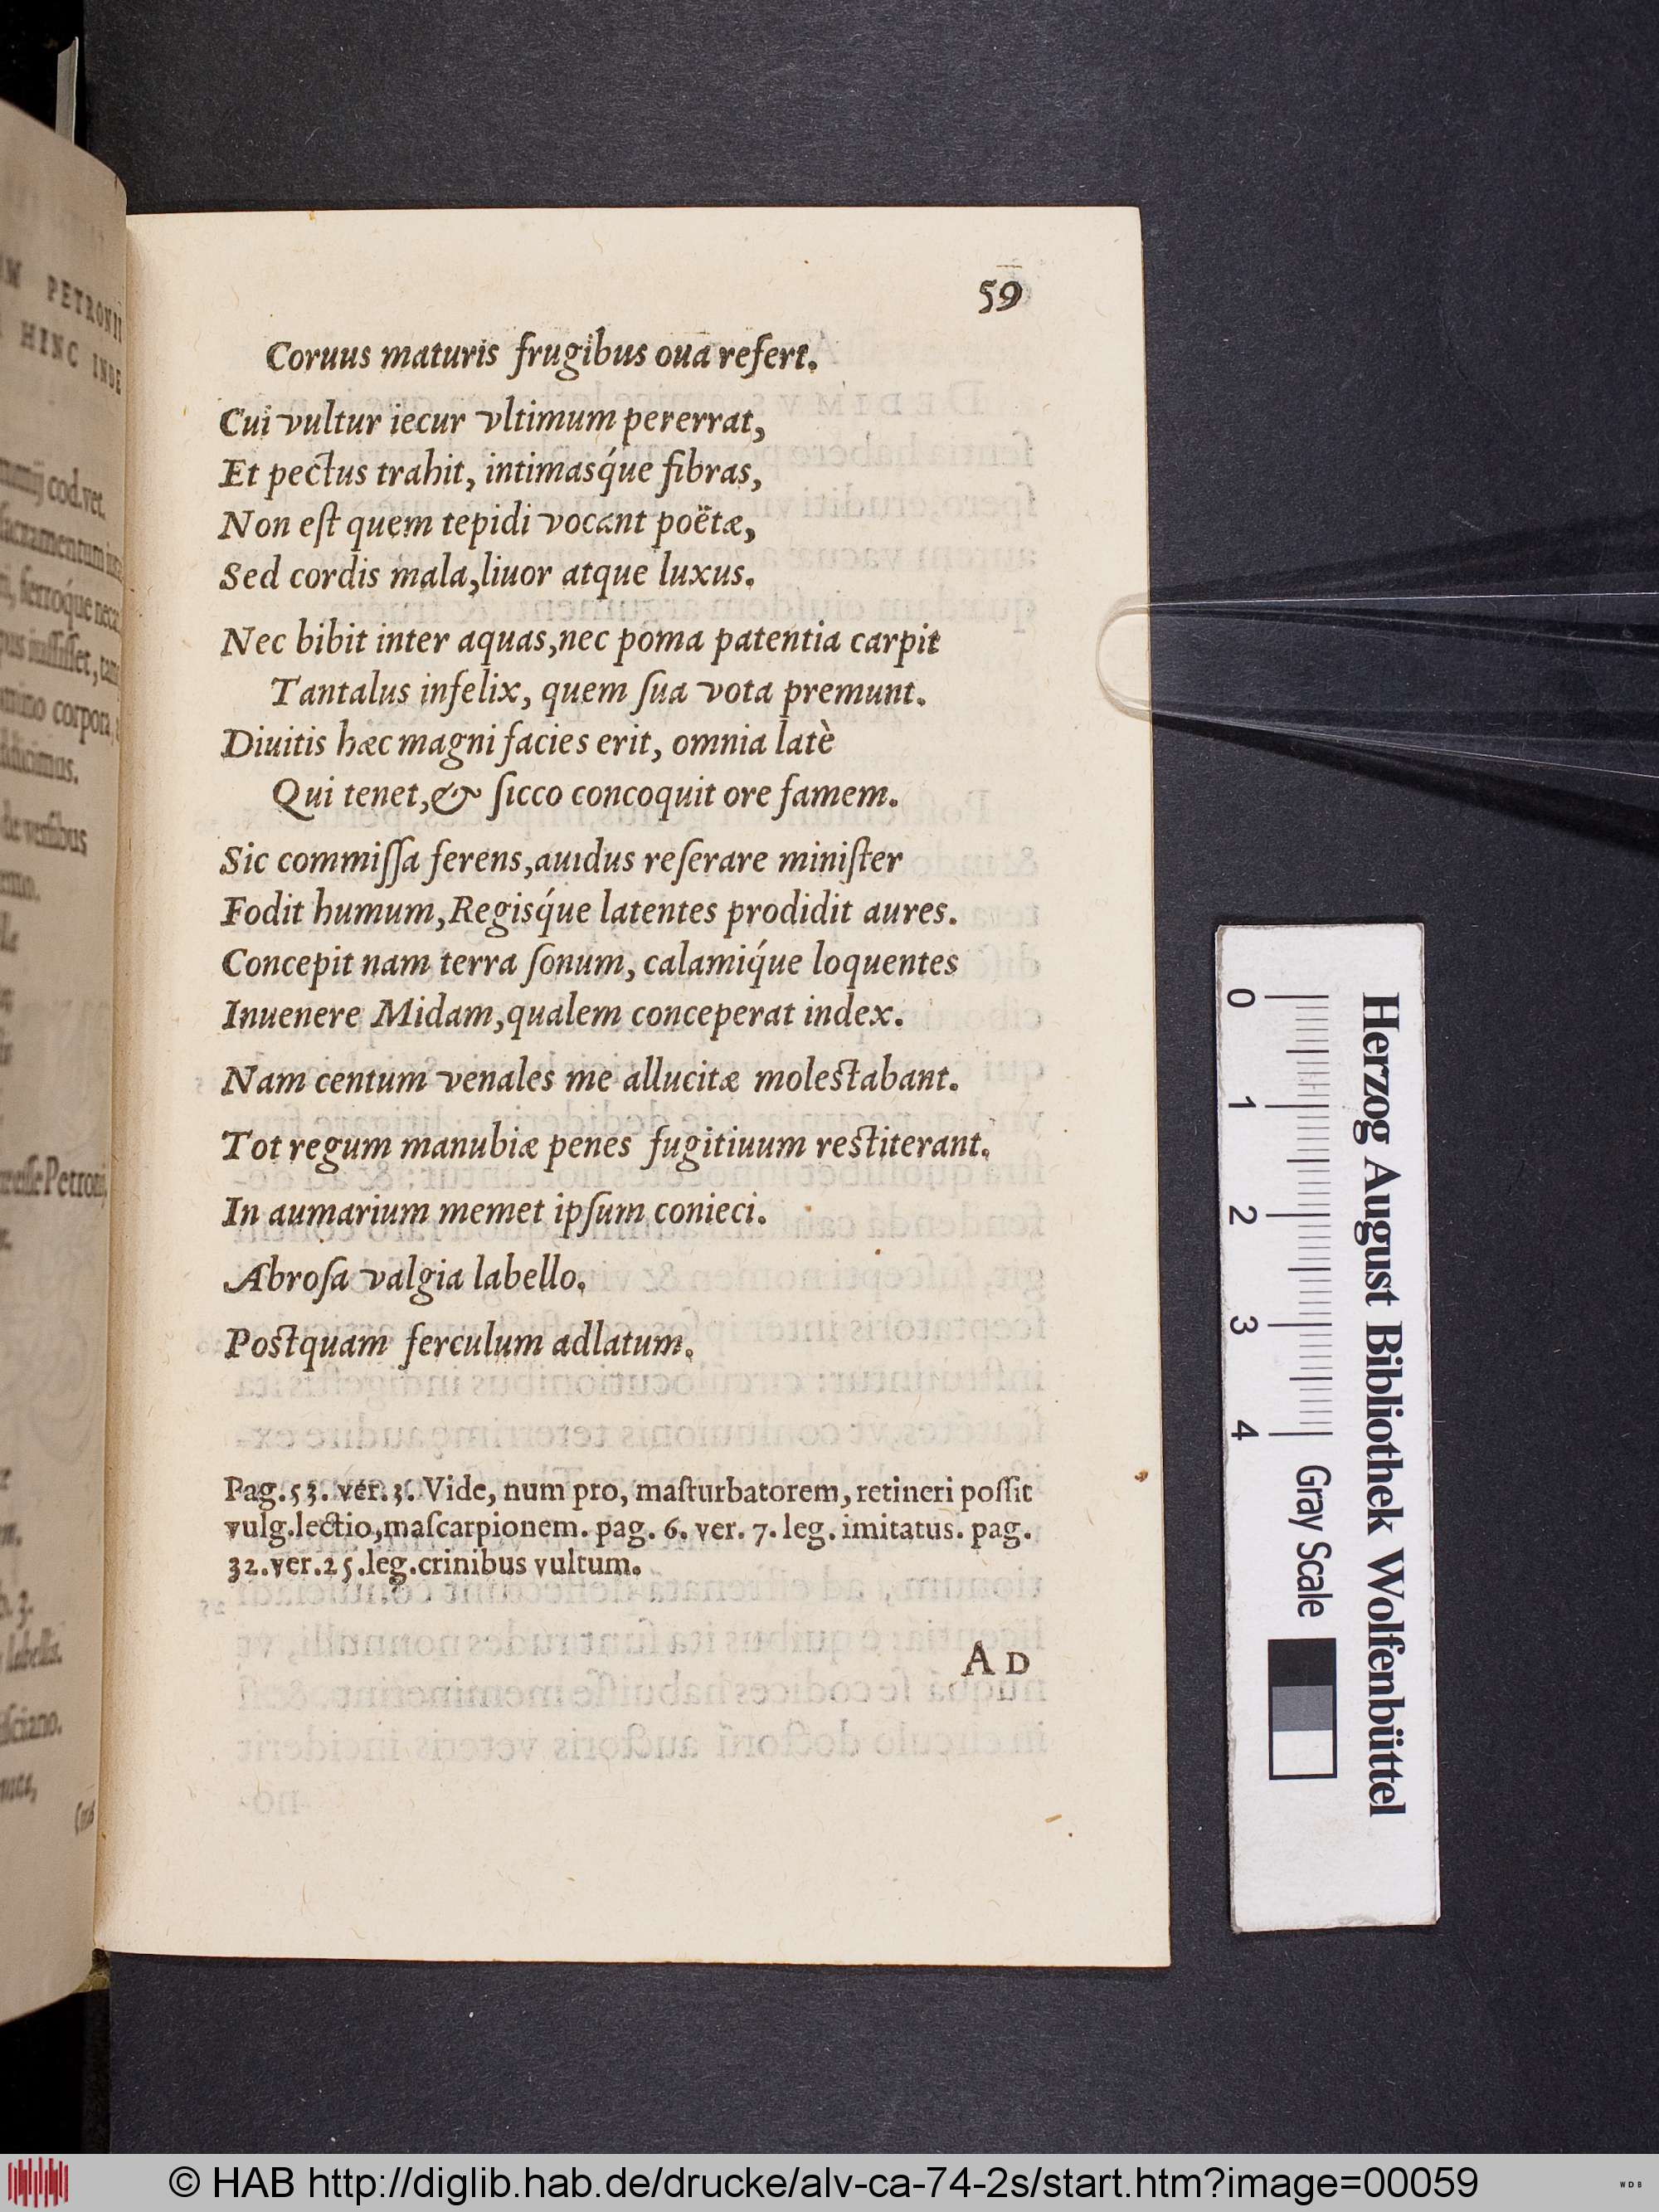 59
Coruus maturis frugibus oua refert.
Cui vultur iecur vltimum pererrat,
Et pectus trahit, intimasq́ue fibras,
Non eſt quem tepidi vocant poëtæ,
Sed cordis mala, liuor atque luxus.
Nec bibit inter aquas, nec poma patentia carpit
Tantalus infelix, quem ſua vota premunt.
Diuitis hæc magni facies erit, omnia latè
Qui tenet, & ſicco concoquit ore famem.
Sic commiſſa ferens, auidus reſerare miniſter
Fodit humum, Regisq́ue latentes prodidit aures.
Concepit nam terra ſonum, calamiq́ue loquentes
Inuenere Midam, qualem conceperat index.
Nam centum venales me allucitæ molestabant.
Tot regum manubiæ penes fugitiuum restiterant.
In aumarium memet ipſum conieci.
Abroſa valgia labello.
Postquam ferculum adlatum.
Pag. 53. ver. 3. Vide, num pro, maſturbatorem, retineri poſſit
vulg. lectio, maſcarpionem. pag. 6. ver. 7. leg. imitatus. pag.
32. ver. 25. leg. crinibus vultum.
AD
PETRONII
HINC INDE
cod. vet.
ſacramentum
ferróque
corpora
verſibus
Petroni
labella.
0 1 2 3 4
Gray Scale
Herzog August Bibliothek Wolfenbüttel
© HAB http://diglib.hab.de/drucke/alv-ca-74-2s/start.htm?image=00059
WDB